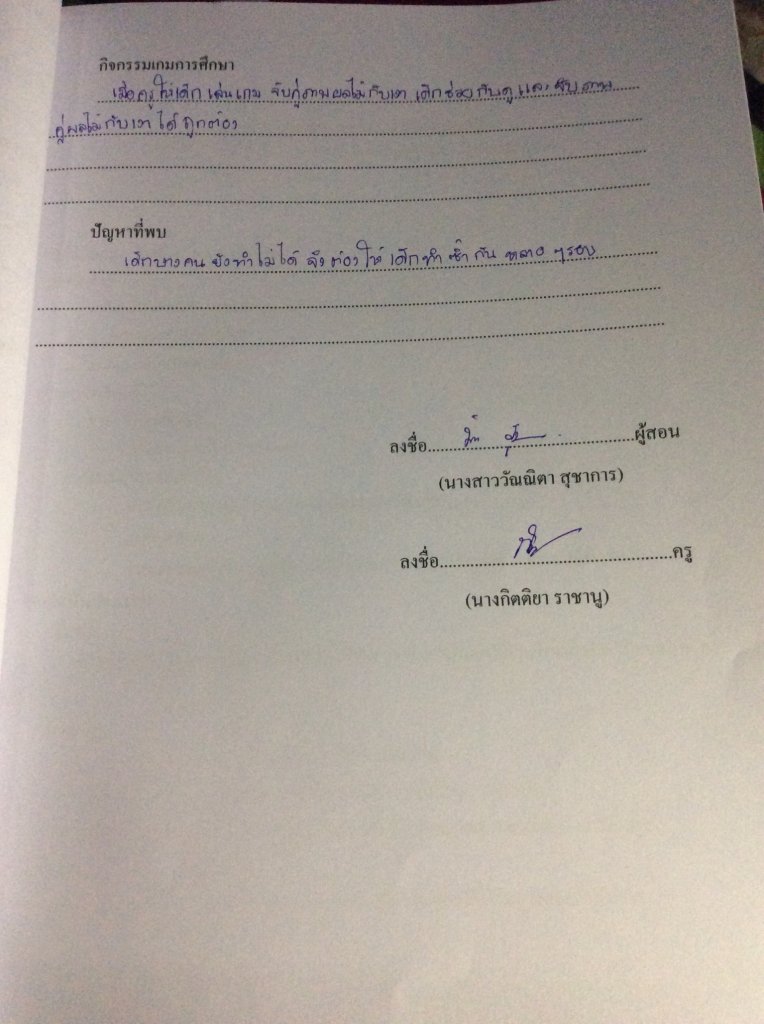 กิจกรรมเกมการศึกษา
เมื่อครูให้เด็กเล่นเกม จับคู่ภาพผลไม้กับเงา เด็กช่วยกันดู และจับภาพ
คู่ผลไม้กับเงาได้ถูกต้อง
ปัญหาที่พบ
เด็กบางคน ยังทำไม่ได้ จึงต้องให้ เด็กทำซ้ำกัน หลาย ๆ รอบ
ลงชื่อ.......................................ผู้สอน
(นางสาววัณณิตา สุชาการ)
ลงชื่อ.............................................ครู
(นางกิตติยา ราชานู)